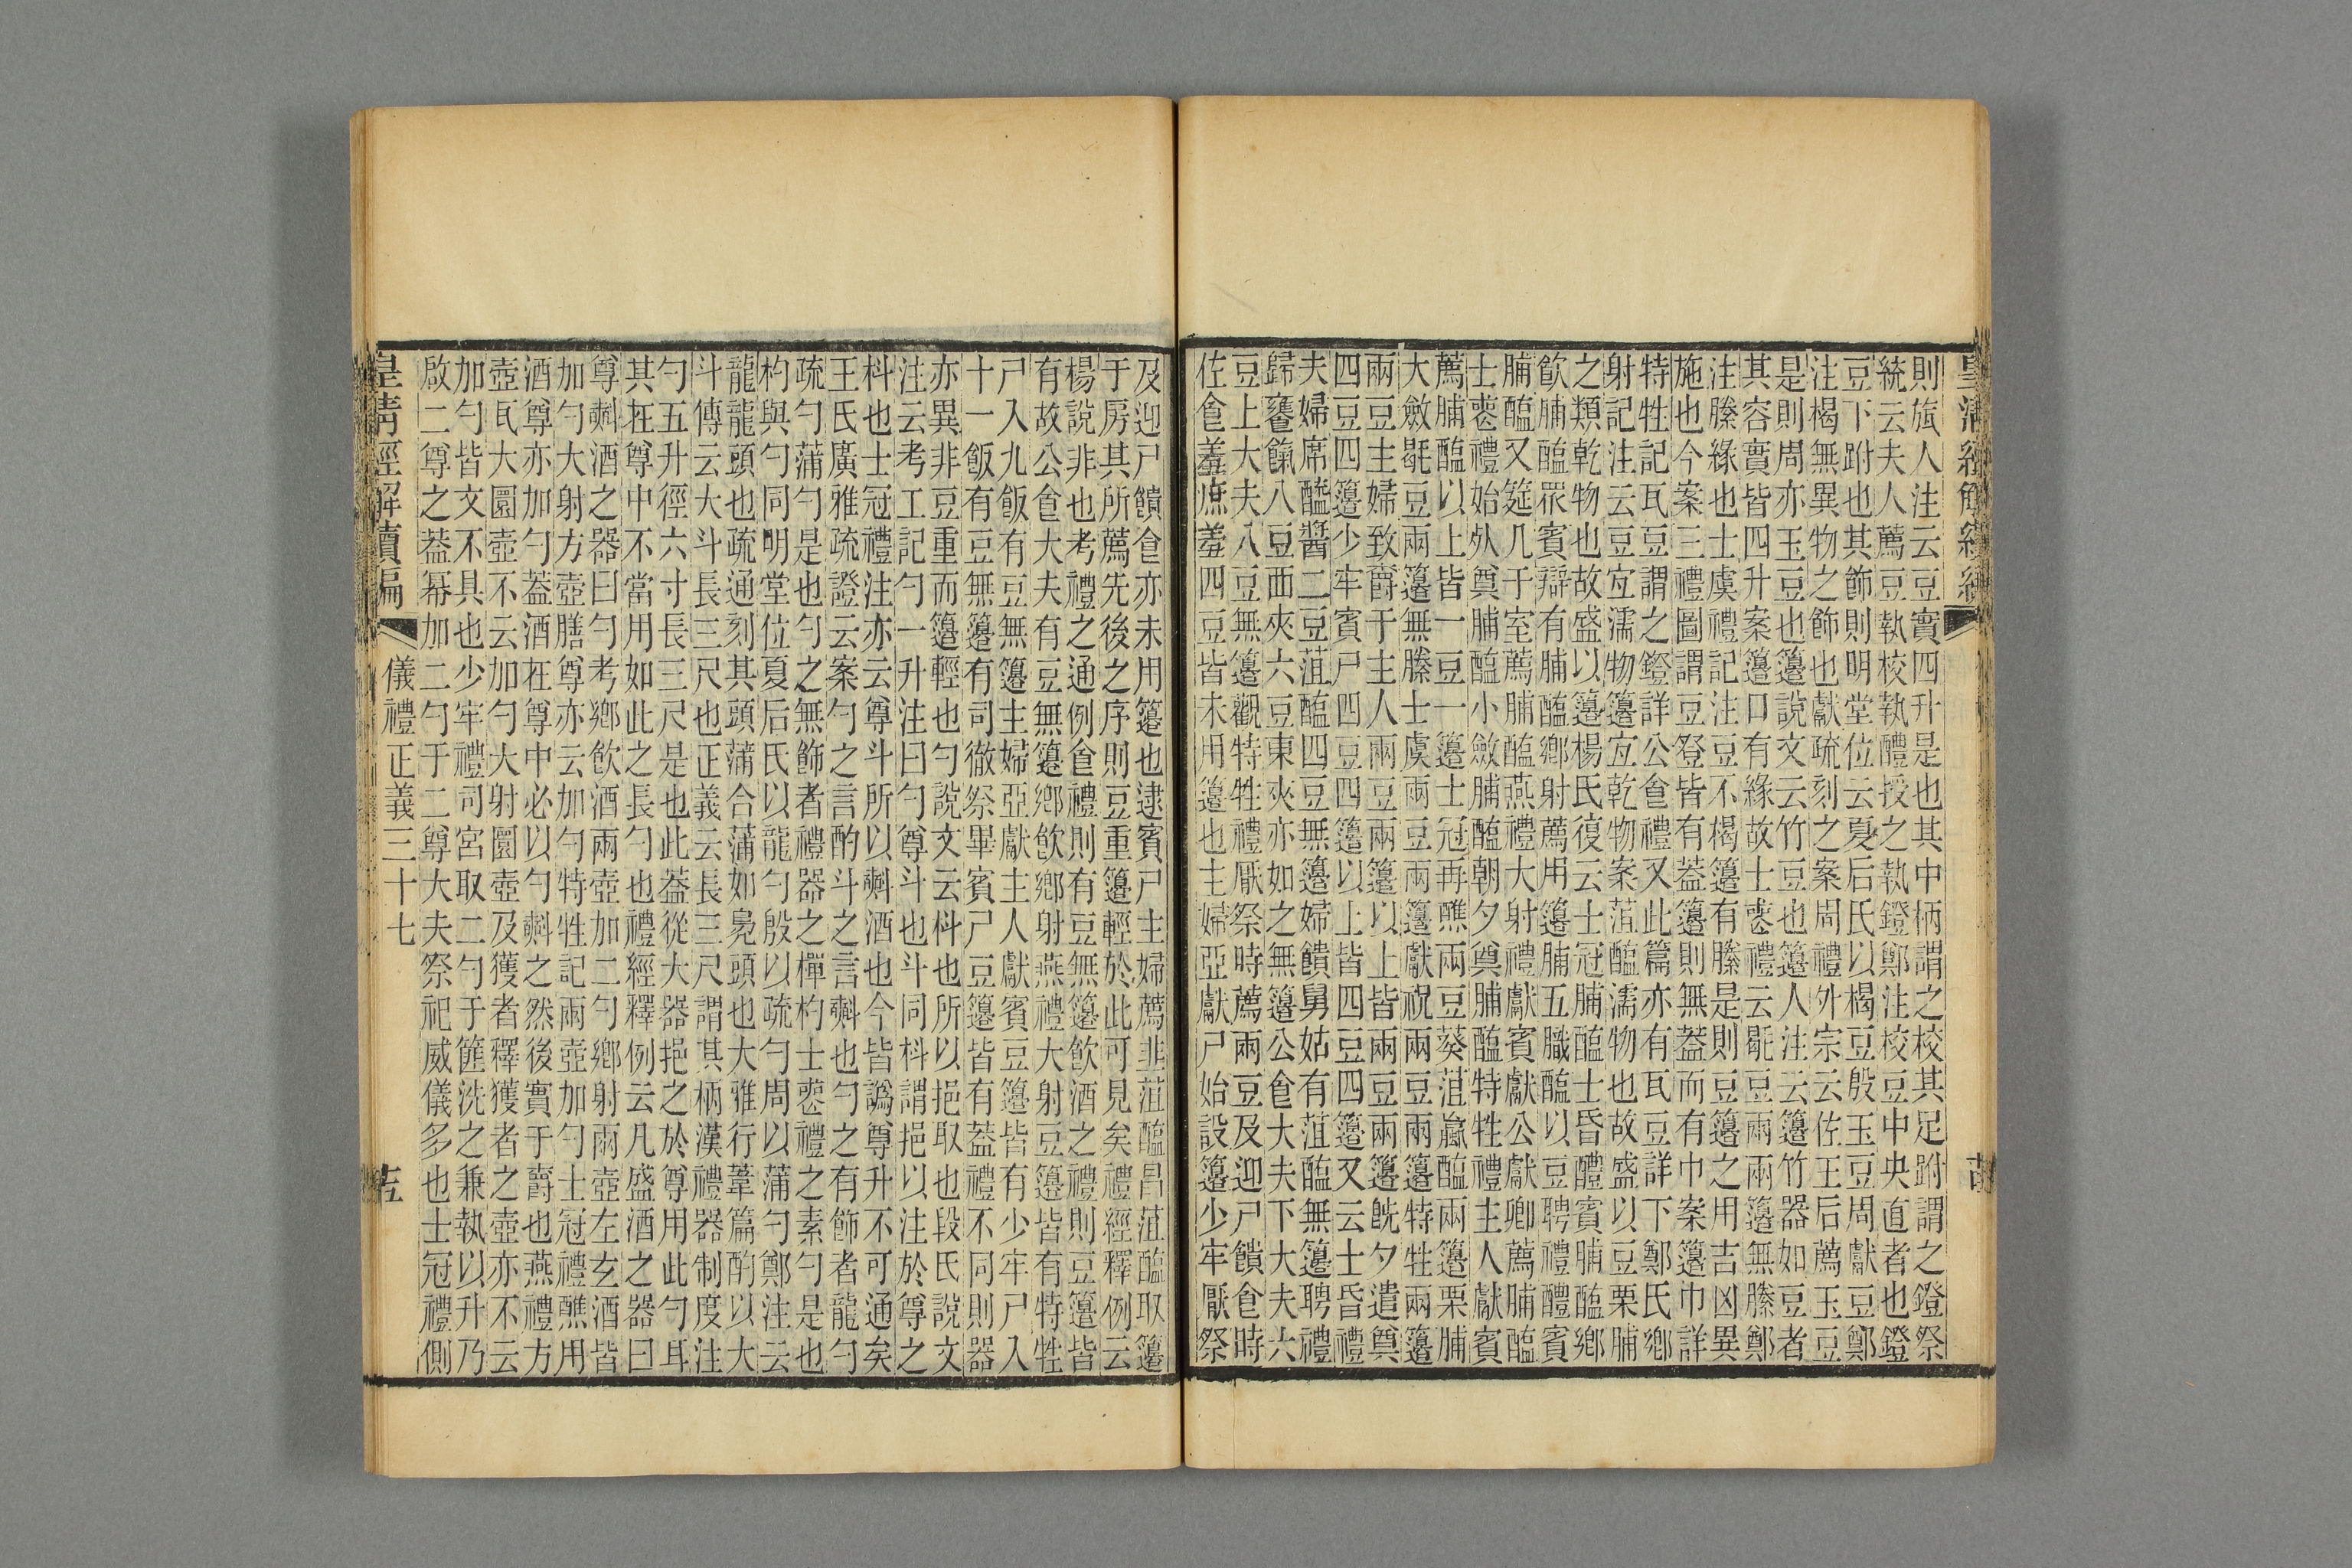 則旊人注云豆實四升是也其中柄謂之校其足跗謂之鐙祭
統云夫人薦豆執校執醴授之執鐙鄭注校豆中央直者也鐙
豆下跗也其飾則明堂位云夏后氏以楬豆殷玉豆周獻豆鄭
注楬無異物之飾也獻疏刻之案周禮外宗云佐王后薦玉豆
是則周亦玉豆也籩說文云竹豆也籩人注云籩竹器如豆者
其容實皆四升案籩口有緣故士喪禮云毼豆兩兩籩無縢鄭
注縢緣也士虞禮記注豆不楬籩有縢是則豆籩之用吉凶異
施也今案三禮圖謂豆豋皆有葢籩則無葢而有巾案籩巾詳
特牲記瓦豆謂之鐙詳公食禮又此篇亦有瓦豆詳下鄭氏鄉
射記注云豆宐濡物籩宐乾物案菹醢濡物也故盛以豆栗脯
之類乾物也故盛以籩楊氏復云士冠脯醢士昏醴賓脯醢鄉
飲脯醢眾賓辯有脯醢鄉射薦用籩脯五膱醢以豆聘禮醴賓
脯醢又筵几于室薦脯醢燕禮大射禮獻賓獻公獻卿薦脯醢
士喪禮始死奠脯醢小斂脯醢朝夕奠脯醢特牲禮主人獻賓
薦脯醢以上皆一豆一籩士冠再醮兩豆葵菹蠃醢兩籩栗脯
大斂毼豆兩籩無縢士虞兩豆兩籩獻祝兩豆兩籩特牲兩籩
兩豆主婦致爵于主人兩豆兩籩以上皆兩豆兩籩旣夕遣奠
四豆四籩少牢賓尸四豆四籩以上皆四豆四籩又云士昏禮
夫婦席醯醬二豆菹醢四豆無籩婦饋舅姑有菹醢無籩聘禮
歸饔餼八豆西夾六豆東夾亦如之無籩公食大夫下大夫六
豆上大夫八豆無籩觀特牲禮厭祭時薦兩豆及迎尸饋食時
佐食羞庶羞四豆皆未用籩也主婦亞獻尸始設籩少牢厭祭
及迎尸饋食亦未用籩也逮賓尸主婦薦韭菹醢昌菹醢取籩
于房其所薦先後之序則豆重籩輕於此可見矣禮經釋例云
楊說非也考禮之通例食禮則有豆無籩飲酒之禮則豆籩皆
有故公食大夫有豆無籩鄉飲鄉射燕禮大射豆籩皆有特牲
尸入九飯有豆無籩主婦亞獻主人獻賓豆籩皆有少牢尸入
十一飯有豆無籩有司徹祭畢賓尸豆籩皆有葢禮不同則器
亦異非豆重而籩輕也勺說文云枓也所以挹取也段氏說文
注云考工記勺一升注曰勺尊斗也斗同枓謂挹以注於尊之
枓也士冠禮注亦云尊斗所以㪺酒也今皆譌尊升不可通矣
王氏廣雅疏證云案勺之言酌斗之言㪺也勺之有飾者龍勺
疏勺蒲勺是也勺之無飾者禮器之樿杓士喪禮之素勺是也
杓與勺同明堂位夏后氏以龍勺殷以疏勺周以蒲勺鄭注云
龍龍頭也疏通刻其頭蒲合蒲如鳧頭也大雅行葦篇酌以大
斗傳云大斗長三尺也正義云長三尺謂其柄漢禮器制度注
勺五升徑六寸長三尺是也此葢從大器挹之於尊用此勺耳
其在尊中不當用如此之長勺也禮經釋例云凡盛酒之器曰
尊㪺酒之器曰勺考鄉飲酒兩壺加二勺鄉射兩壺左玄酒皆
加勺大射方壺膳尊亦云加勺特牲記兩壺加勺士冠禮醮用
酒尊亦加勺葢酒在尊中必以勺㪺之然後實于爵也燕禮方
壺瓦大圜壺不云加勺大射圜壺及獲者釋獲者之壺亦不云
加勺皆文不具也少牢禮司宮取二勺于篚洗之兼執以升乃
啟二尊之葢冪加二勺于二尊大夫祭祀威儀多也士冠禮側
皇清經解續編 儀禮正義三十七 十五